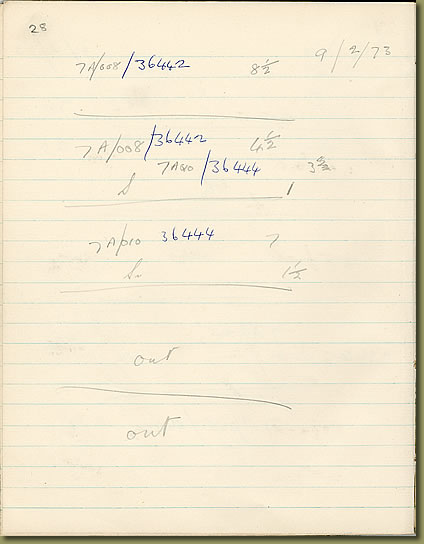 28
9/2/73
7A/008/36442 8½
7A/008/36442 4½
7A010/36444
S 1
7A/010 36444 7
S. 1½
out
out